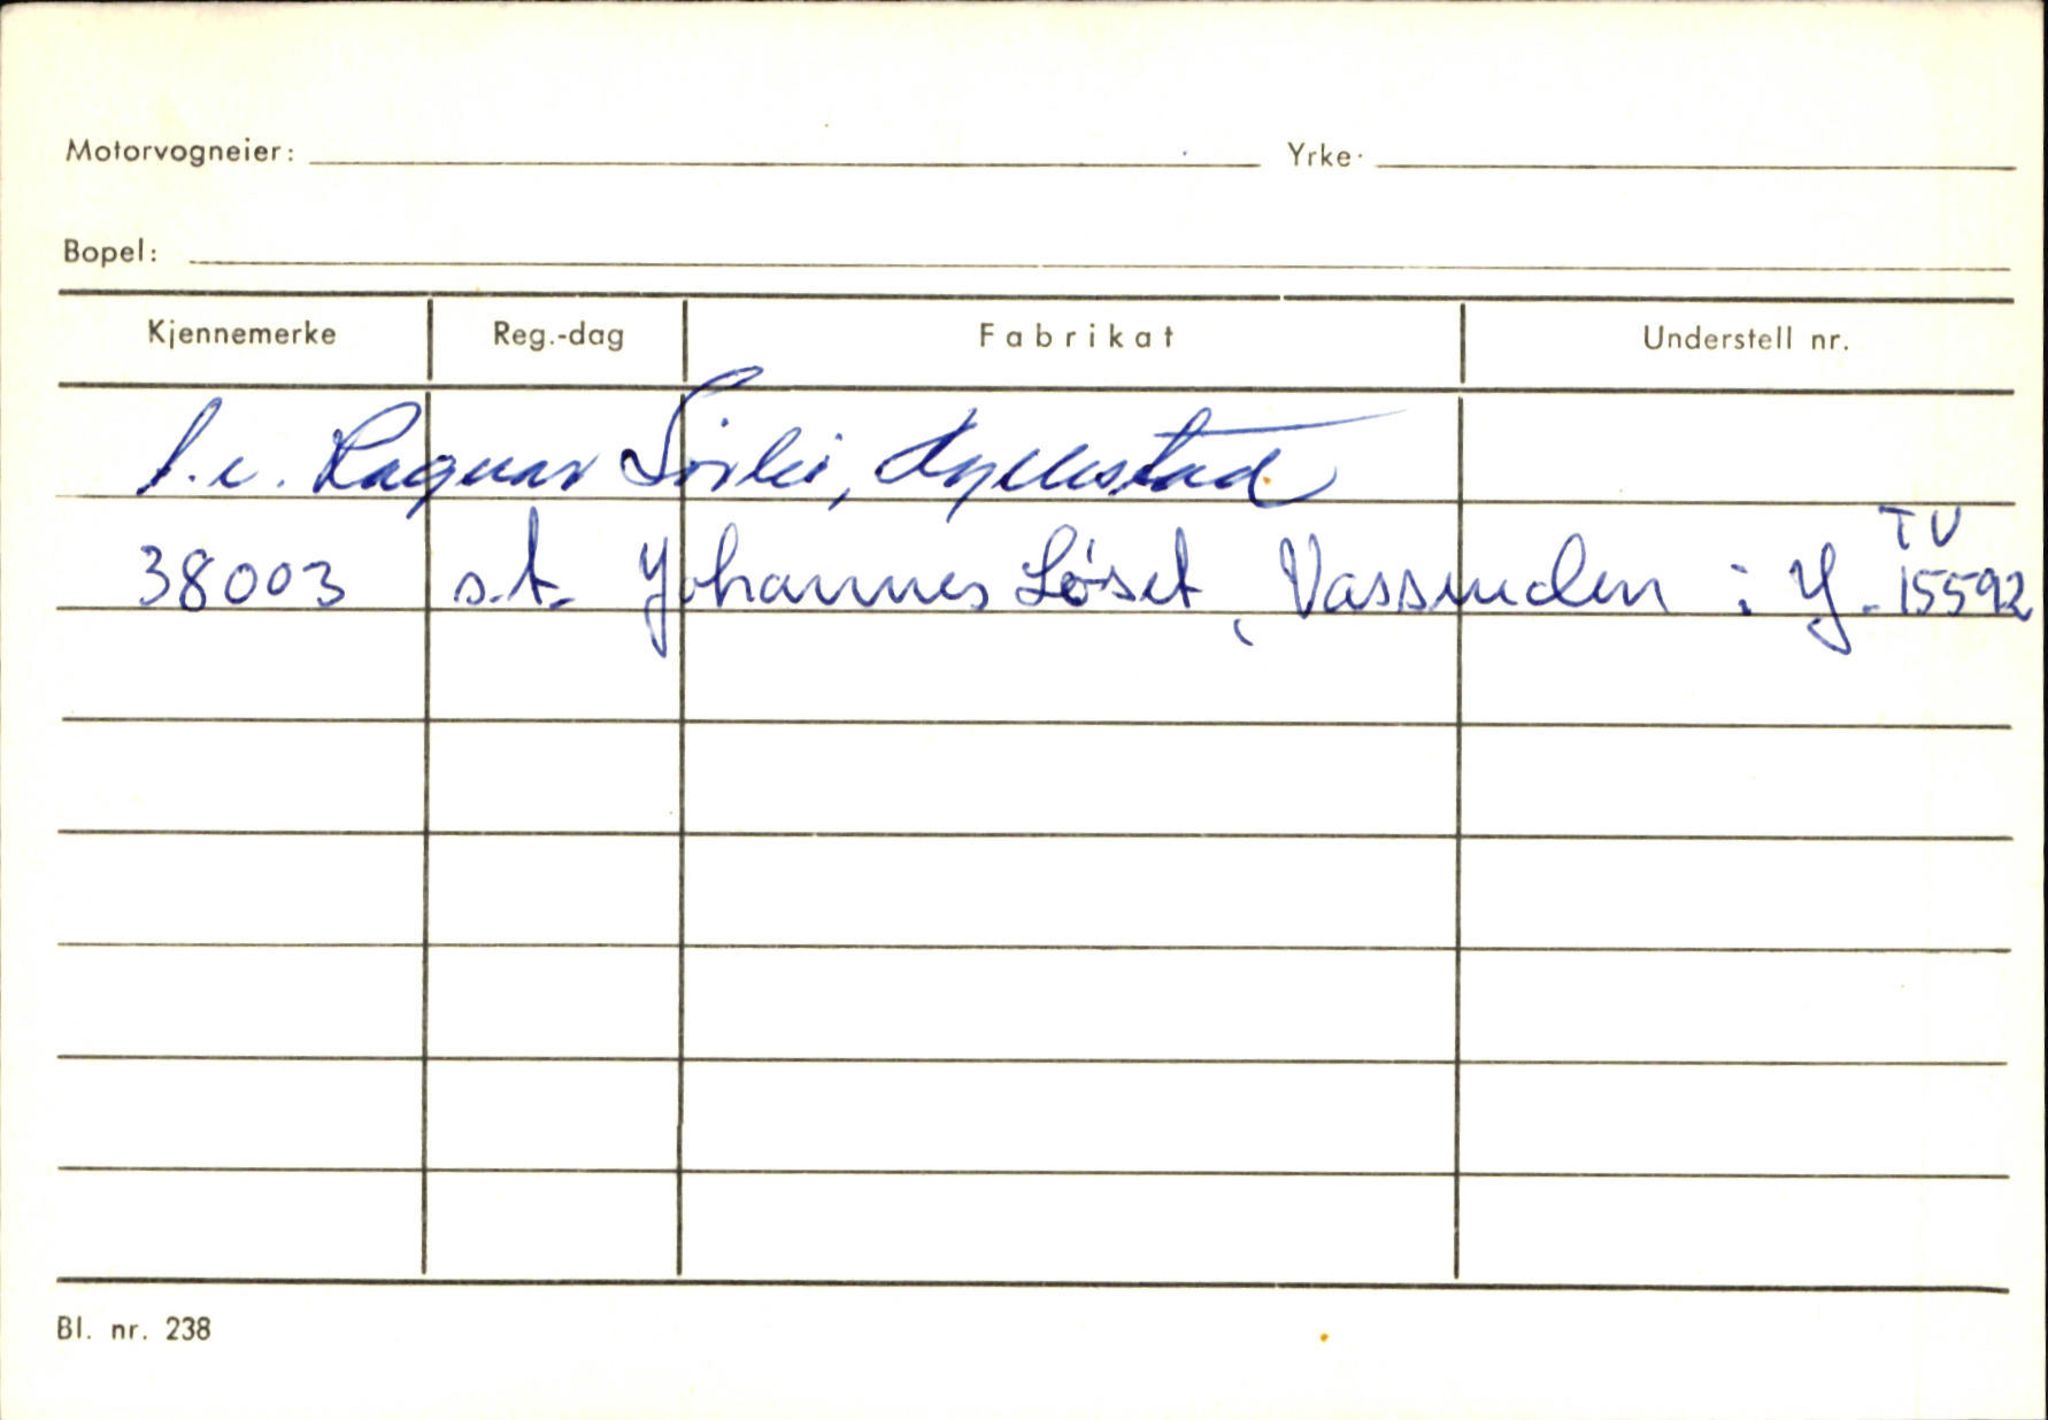 Motorvogneier: Yrke:
Bopel:
Kjennemerke Reg.-dag Fabrikat Understell nr.
Ragnar Sørlie, Hyllestad
TV
38003 s.t. Johannes Løset, Vassenden : Y-15592
Bl. nr. 238